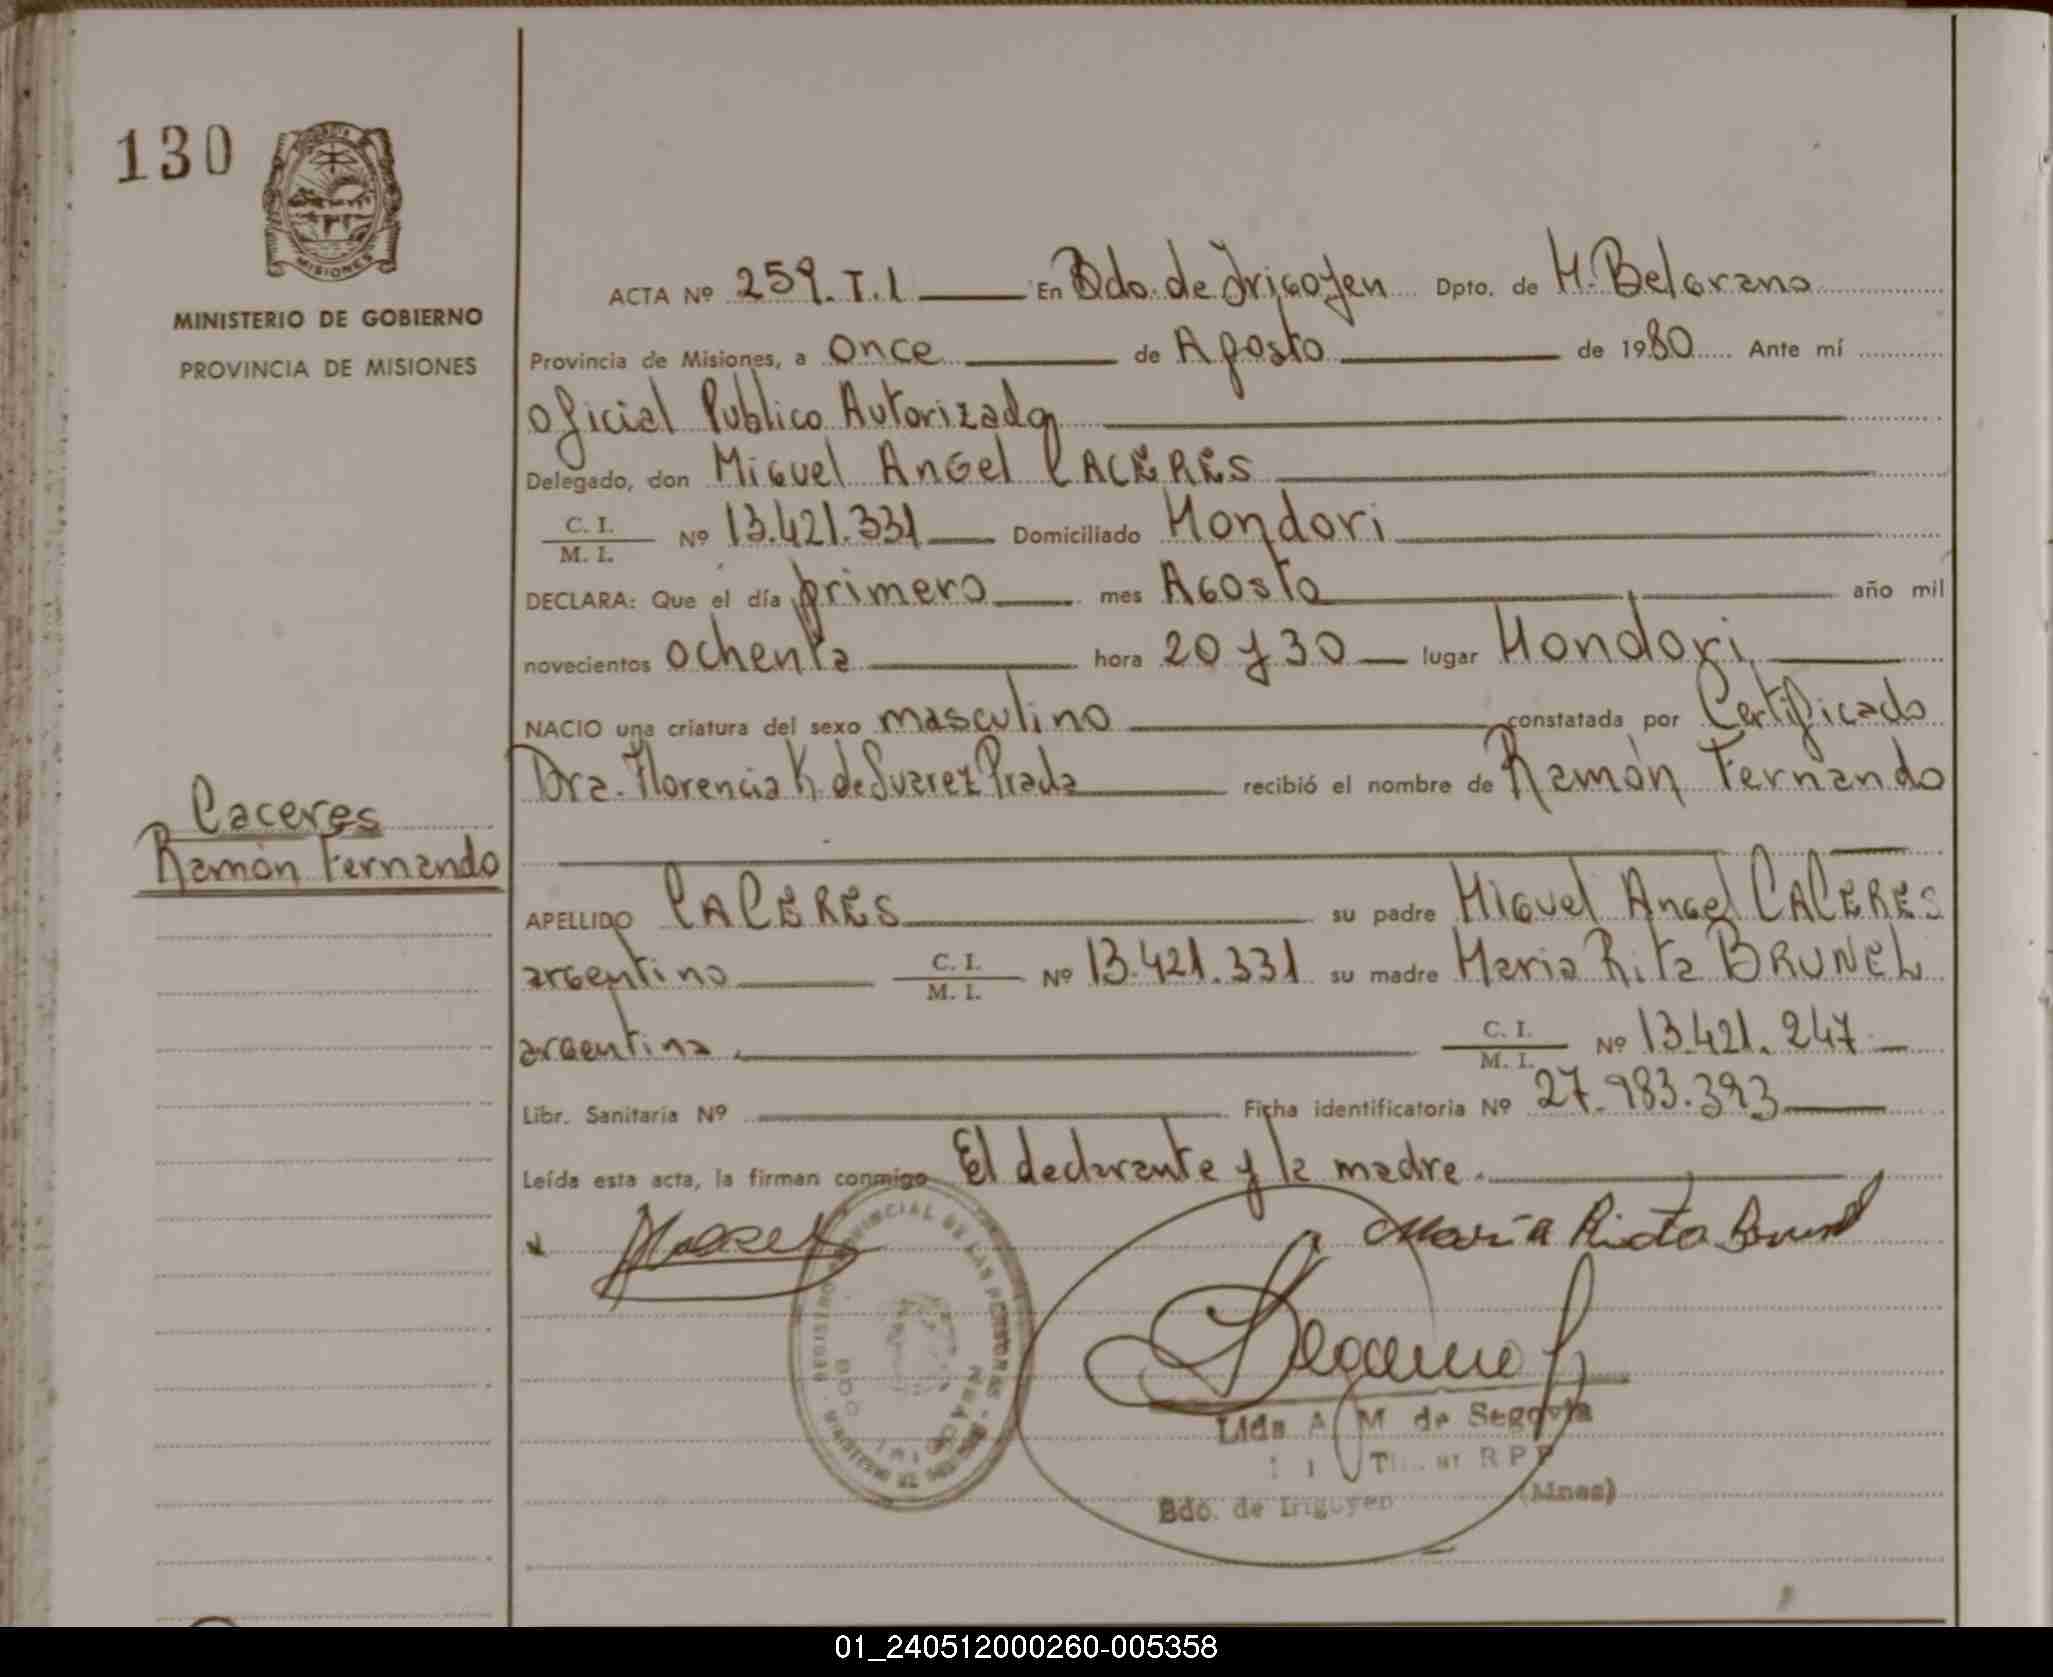 130
MISIONES
MINISTERIO DE GOBIERNO
PROVINCIA DE MISIONES
Caceres
Ramón Fernando
ACTA Nº 259. T. I En Bdo. de Irigoyen Dpto. de M. Belgrano
Provincia de Misiones, a once de Agosto de 1980 Ante mí
oficial Publico Autorizado
Delegado, don Miguel Angel CACERES
C. I.
M. I. Nº 13.421.331 Domiciliado Mondori
DECLARA: Que el día primero mes Agosto año mil
novecientos ochenta hora 20 y 30 lugar Mondori
NACIO una criatura del sexo masculino constatada por Certificado
Dra. Florencia K. de Suarez Prada recibió el nombre de Ramón Fernando
APELLIDO CACERES su padre Miguel Angel CACERES
argentino C. I.
M. I. Nº 13.421.331 su madre Maria Rita BRUNEL
argentina. C. I.
M. I. Nº 13.421.247
Libr. Sanitaria Nº Ficha identificatoria Nº 27.983.393
Leída esta acta, la firman conmigo El declarante y la madre.
María Rista
REGISTRO PROVINCIAL DE LAS PERSONAS
Lida A M de Segovia
R P P
Bdo. de Irigoyen (Mnes)
01_240512000260-005358